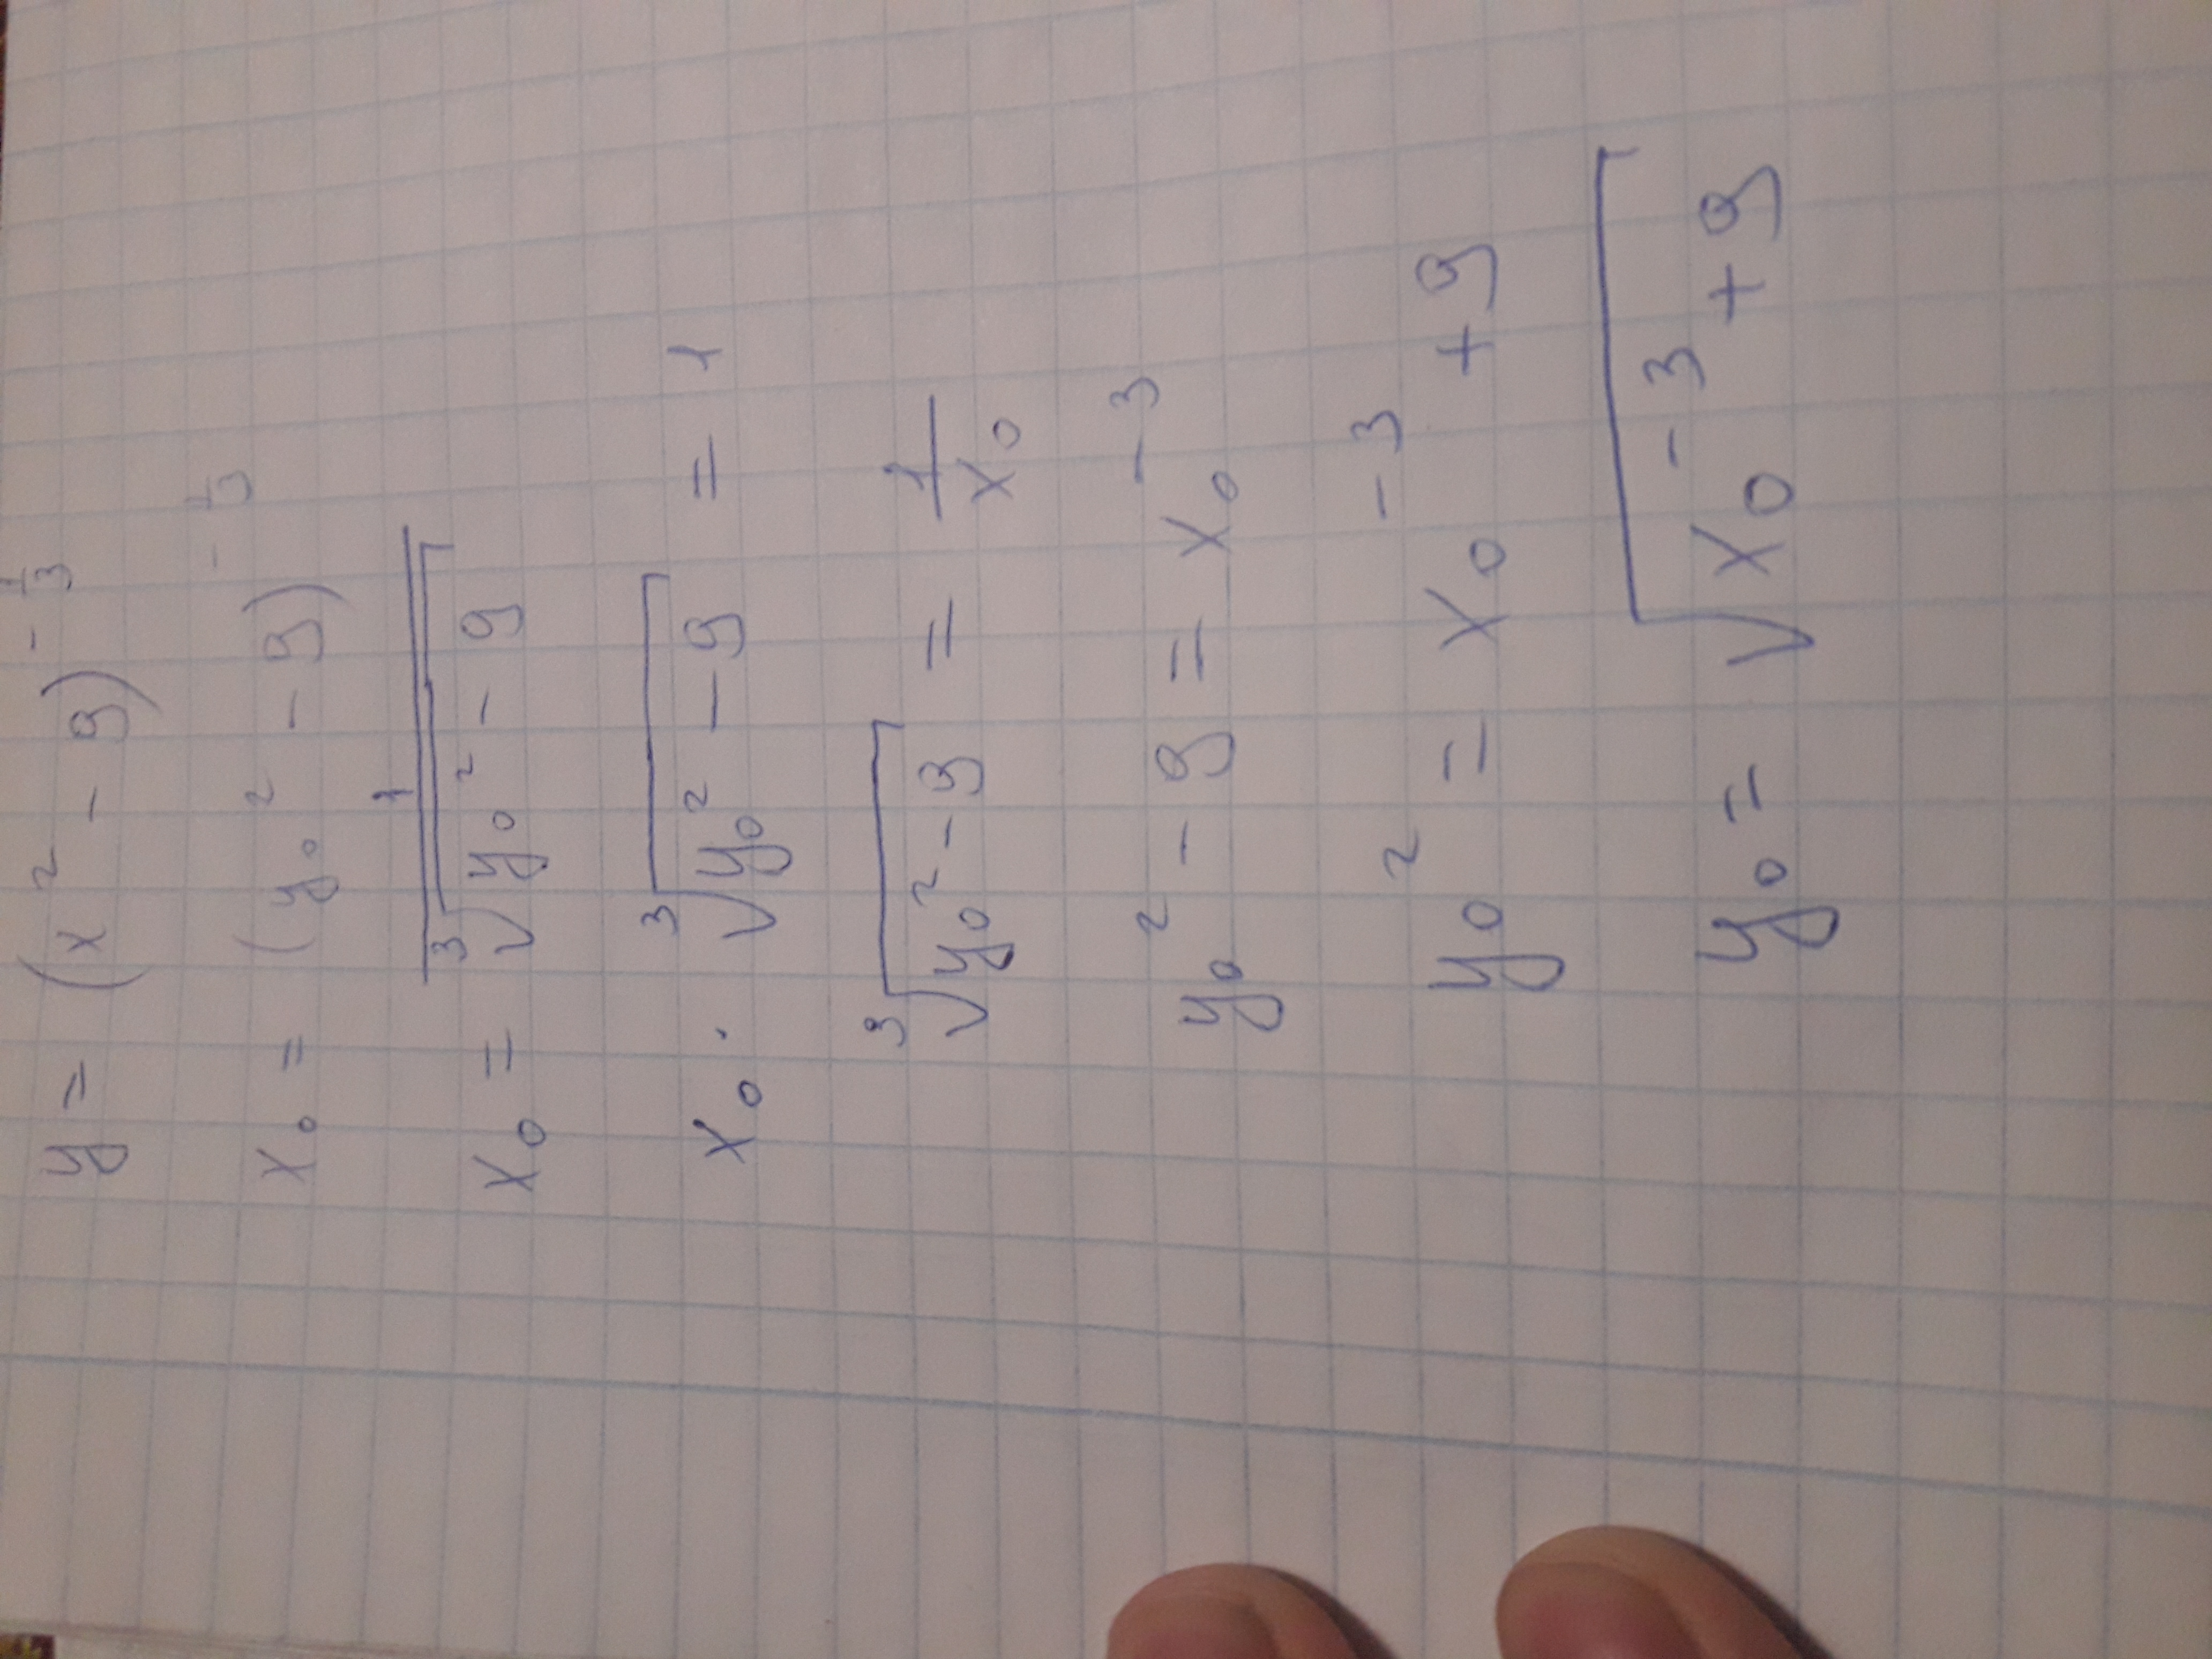 y = (x² - 9)^(-1/3)
x₀ = (y₀² - 9)^(-1/3)
x₀ = 1/∛(y₀² - 9)
x₀ · ∛(y₀² - 9) = 1
∛(y₀² - 9) = 1/x₀
y₀² - 9 = x₀⁻³
y₀² = x₀⁻³ + 9
y₀ = √(x₀⁻³ + 9)